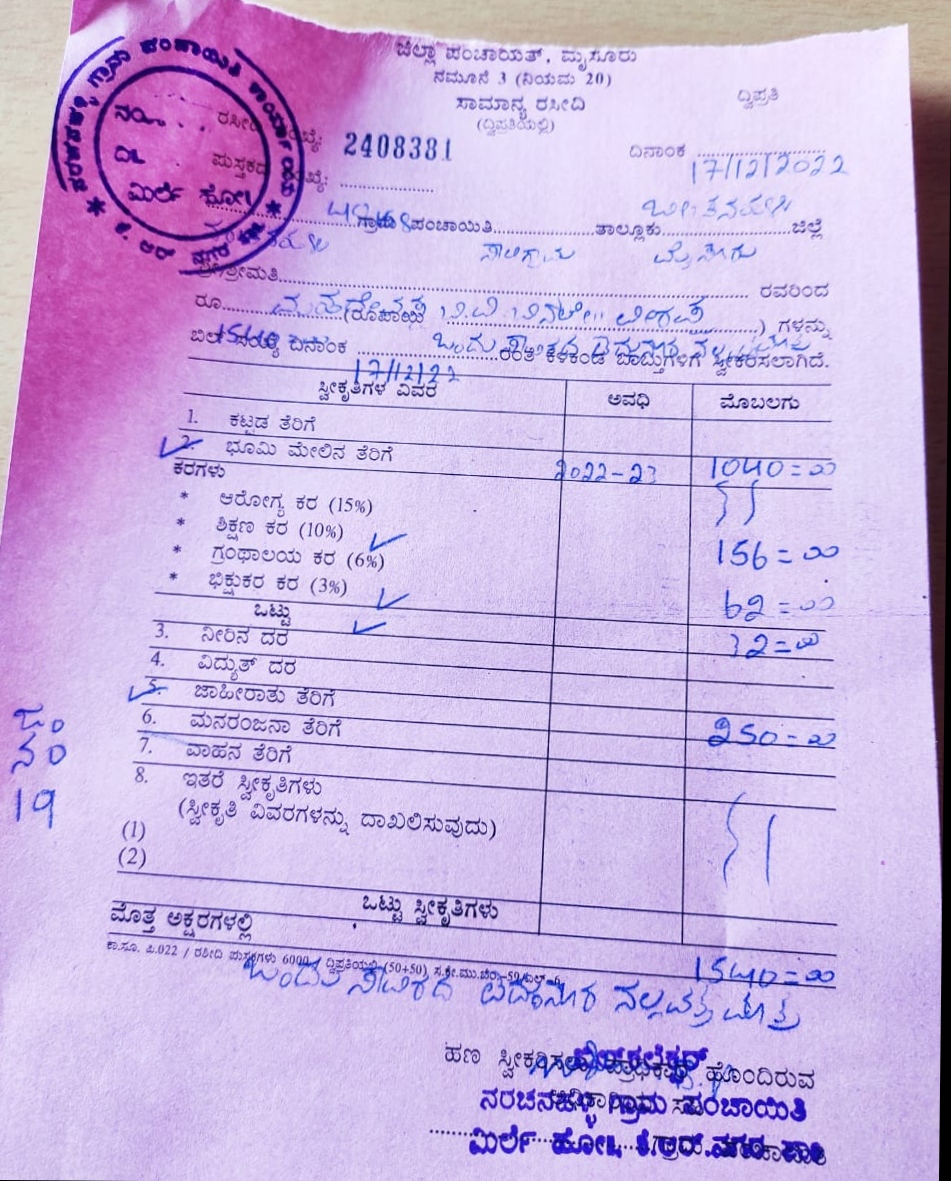 ಜಿಲ್ಲಾ ಪಂಚಾಯತ್, ಮೈಸೂರು
ನಮೂನೆ 3 (ನಿಯಮ 20)
ಸಾಮಾನ್ಯ ರಸೀದಿ
ದ್ವಿಪ್ರತಿ
(ದ್ವಿಪ್ರತಿಯಲ್ಲಿ)
ಗ್ರಾಮ ಪಂಚಾಯಿತಿ ಕಾರ್ಯಾಲಯ
ನಂ.
ದಿ.
ಮಿರ್ಲೆ ಹೋ॥
ಕೆ. ಆರ್ ನಗರ
2408381
ದಿನಾಂಕ 17/12/2022
ಪುಸ್ತಕದ
ಗ್ರಾಮ ಪಂಚಾಯಿತಿ ತಾಲ್ಲೂಕು ಜಿಲ್ಲೆ
ಸಾಲಿಗ್ರಾಮ ಮೈಸೂರು
ಶ್ರೀ/ಶ್ರೀಮತಿ ರವರಿಂದ
ರೂ (ರೂಪಾಯಿ ) ಗಳನ್ನು
ಬಿಲ್ ಸಂಖ್ಯೆ ದಿನಾಂಕ ರಂತೆ ಕೆಳಕಂಡ ಬಾಬ್ತುಗಳಿಗೆ ಸ್ವೀಕರಿಸಲಾಗಿದೆ.
1540 17/12/22
ಸ್ವೀಕೃತಿಗಳ ವಿವರ ಅವಧಿ ಮೊಬಲಗು
1. ಕಟ್ಟಡ ತೆರಿಗೆ
2. ಭೂಮಿ ಮೇಲಿನ ತೆರಿಗೆ 2022-23 1040=00
ಕರಗಳು
* ಆರೋಗ್ಯ ಕರ (15%)
* ಶಿಕ್ಷಣ ಕರ (10%) 156=00
* ಗ್ರಂಥಾಲಯ ಕರ (6%)
* ಭಿಕ್ಷುಕರ ಕರ (3%) 62=00
ಒಟ್ಟು 32=00
3. ನೀರಿನ ದರ
4. ವಿದ್ಯುತ್ ದರ
5. ಜಾಹೀರಾತು ತೆರಿಗೆ 250=00
6. ಮನರಂಜನಾ ತೆರಿಗೆ
7. ವಾಹನ ತೆರಿಗೆ
8. ಇತರೆ ಸ್ವೀಕೃತಿಗಳು
(ಸ್ವೀಕೃತಿ ವಿವರಗಳನ್ನು ದಾಖಲಿಸುವುದು)
(1)
(2)
ಜಂ
ನಂ
19
ಒಟ್ಟು ಸ್ವೀಕೃತಿಗಳು
ಮೊತ್ತ ಅಕ್ಷರಗಳಲ್ಲಿ 1540=00
ಕಾ.ಸೂ. ಪಿ.022 / ರಸೀದಿ ಪುಸ್ತಕಗಳು 6000 ದ್ವಿಪ್ರತಿಯಲ್ಲಿ (50+50)
ಒಂದು ಸಾವಿರದ ಐದುನೂರ ನಲ್ವತ್ತು ಮಾತ್ರ
ಹಣ ಸ್ವೀಕರಿಸಲು ಹೊಂದಿರುವ
ಬಿಲ್ ಕಲೆಕ್ಟರ್
ಗ್ರಾಮ ಪಂಚಾಯಿತಿ
ಮಿರ್ಲೆ ಹೋ॥ ಕೆ.ಆರ್.ನಗರ ತಾ॥